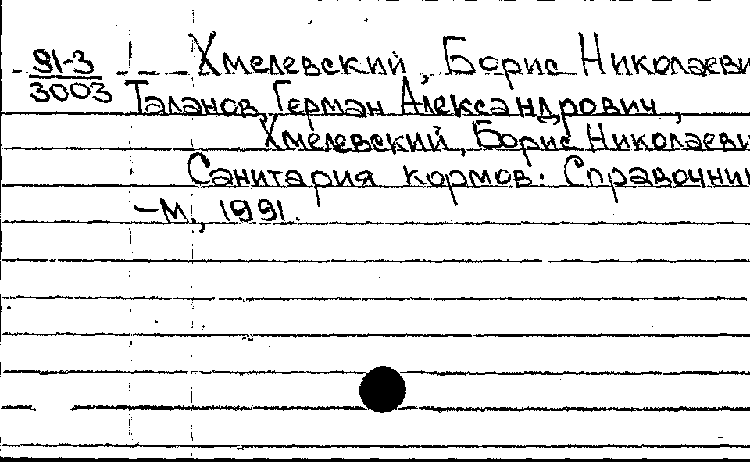 91-3 Хмелевский, Борис Николаеви
3003 Таланов, Герман Александрович,
Хмелевский, Борис Николаеви
Санитария кормов: Справочник
-М., 1991.